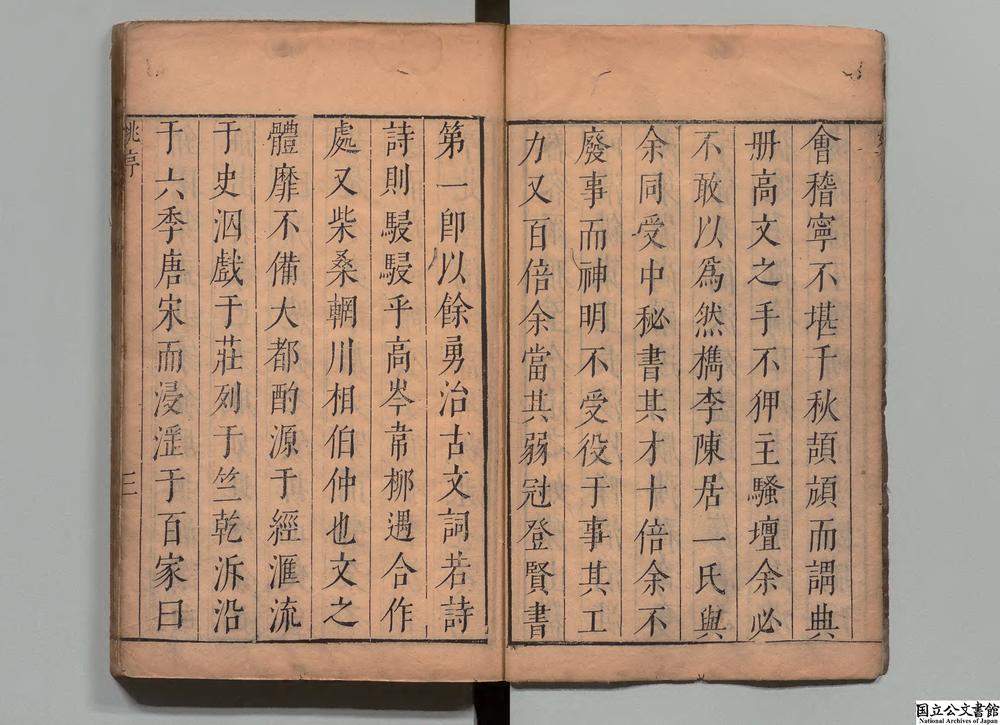 會稽寧不堪千秋頡頏而謂典
册高文之手不狎主騷壇余必
不敢以爲然檇李陳居一氏與
余同受中秘書其才十倍余不
廢事而神明不受役于事其工
力又百倍余當其弱冠登賢書
第一卽以餘勇治古文詞若詩
詩則駸駸乎高岑韋栁遇合作
處又柴桑輞川相伯仲也文之
體靡不備大都酌源于經滙流
于史泅戲于莊列于竺乾泝沿
于六季唐宋而浸淫于百家曰
三
国立公文書館
National Archives of Japan